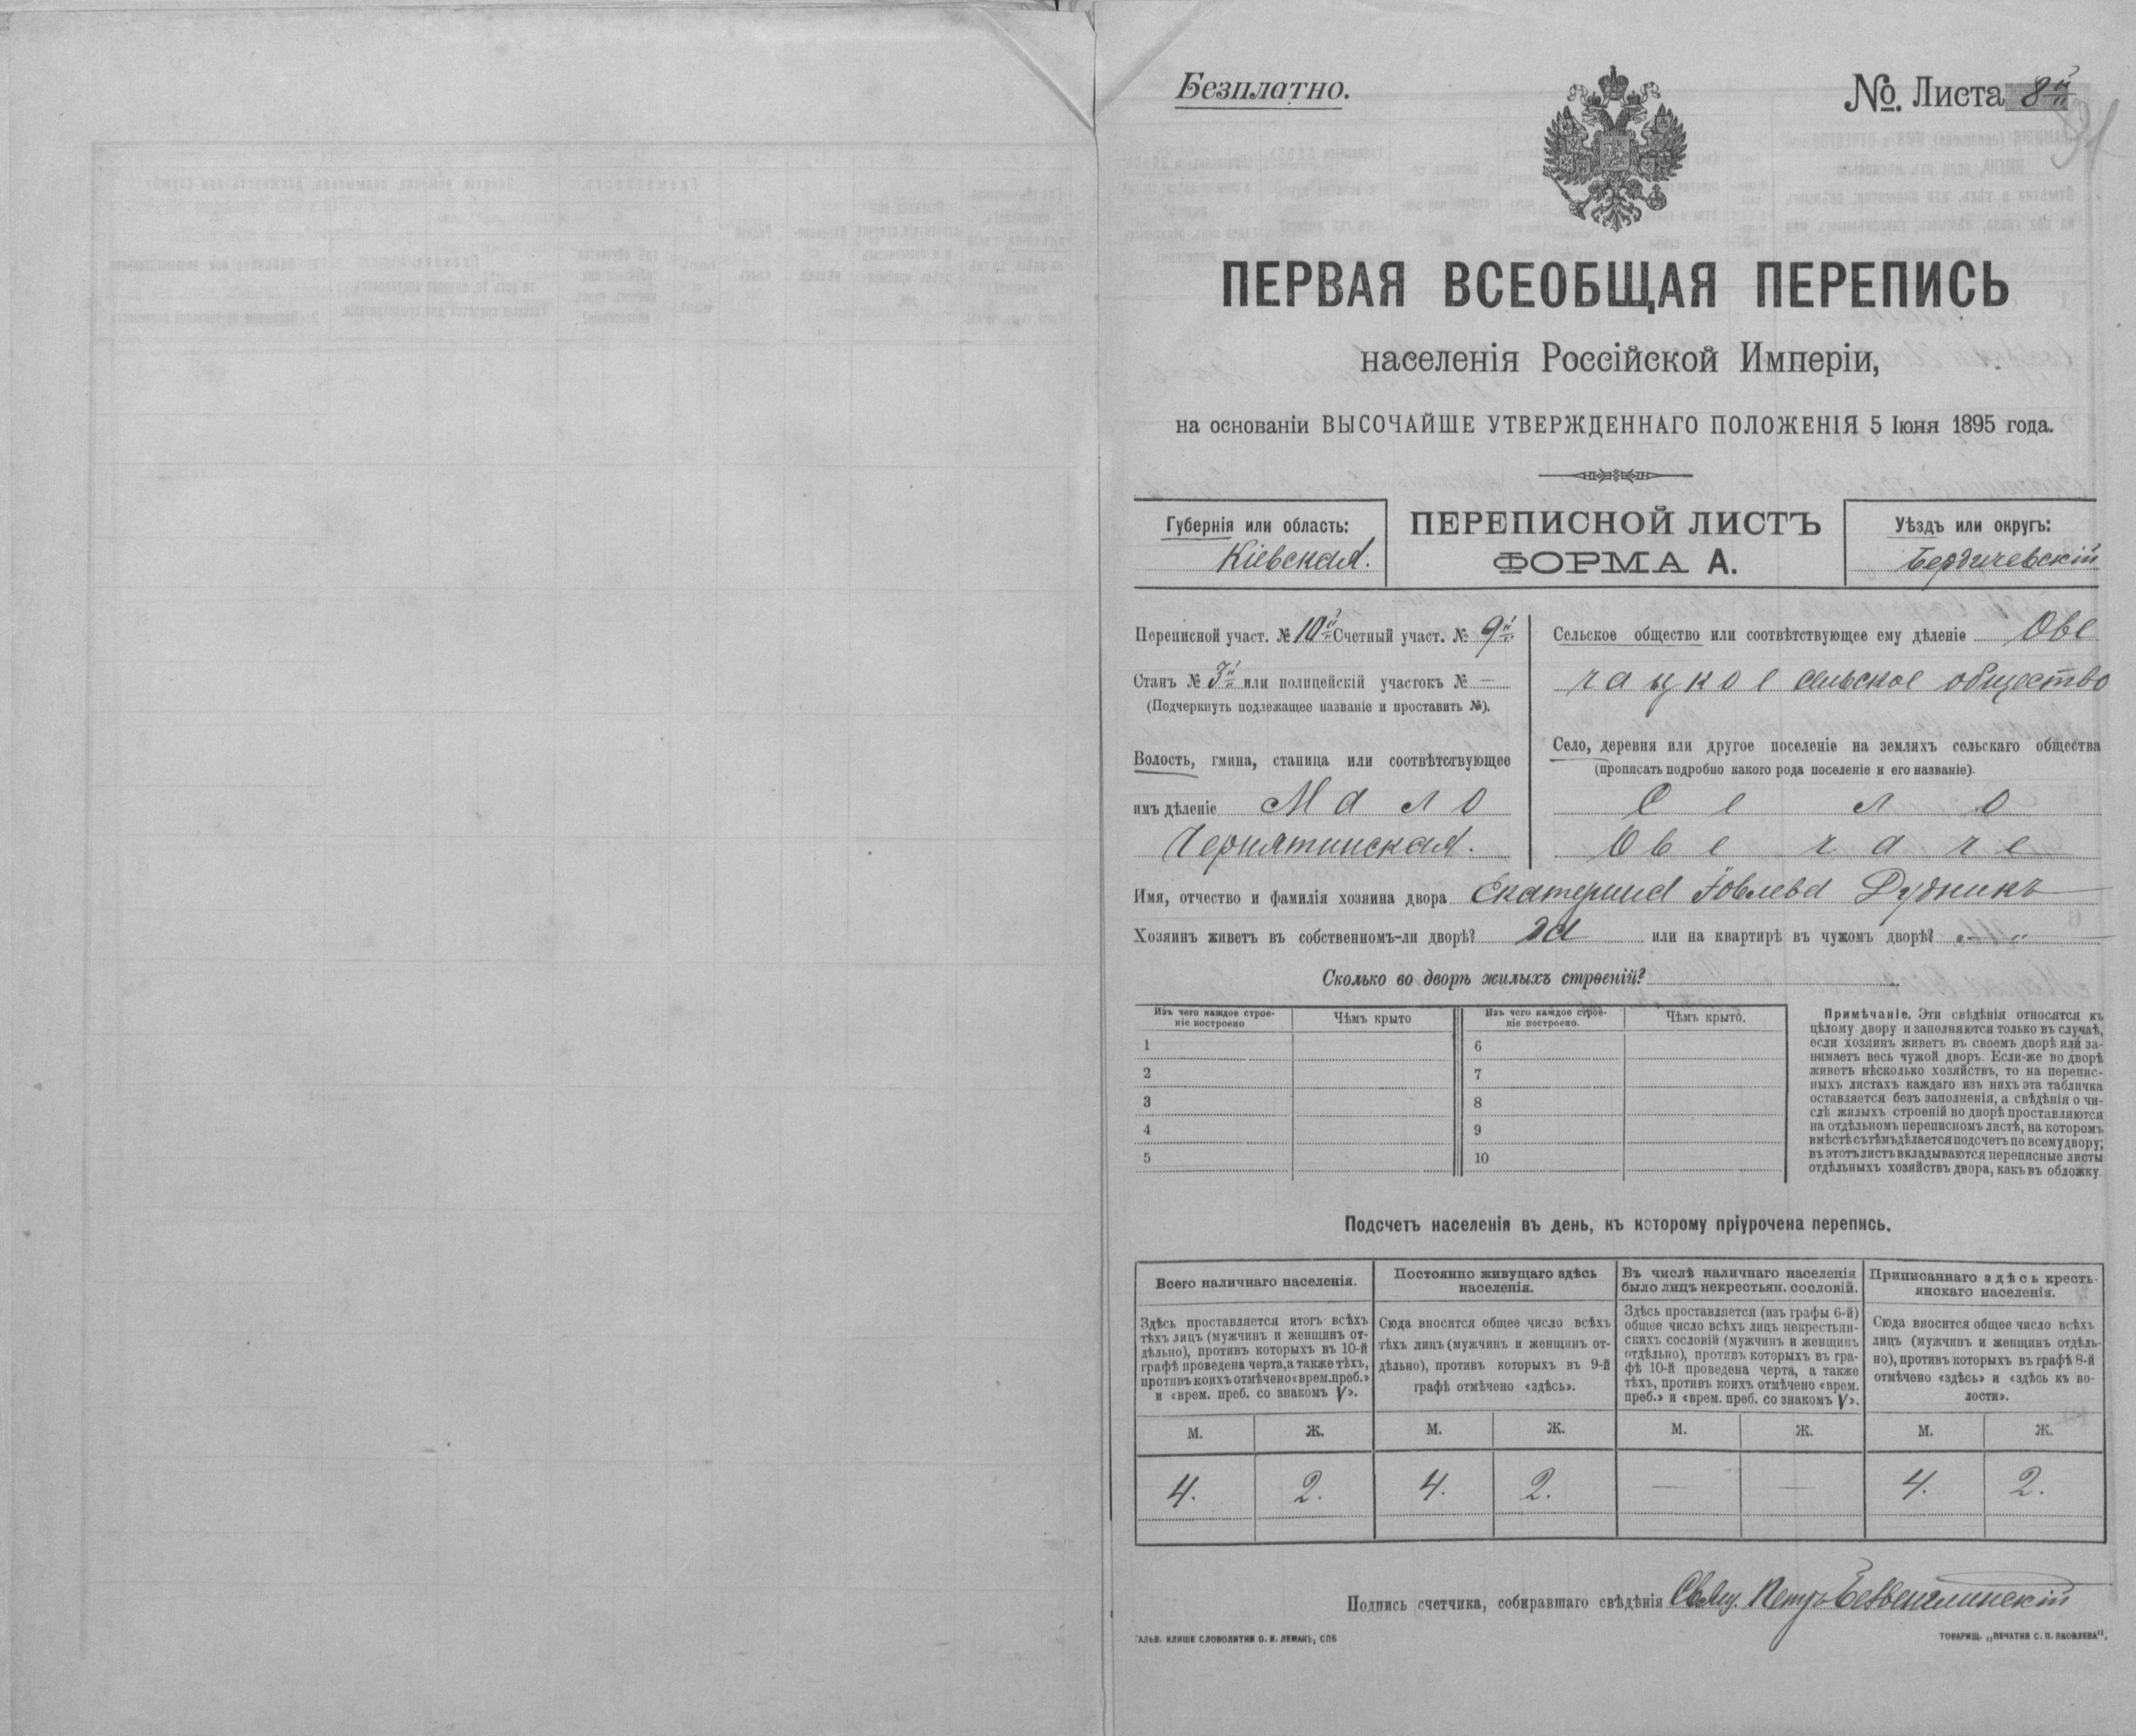 Безплатно.
№. Листа 8й
91
ПЕРВАЯ ВСЕОБЩАЯ ПЕРЕПИСЬ
населенія Россійской Имперіи,
на основаніи ВЫСОЧАЙШЕ УТВЕРЖДЕННАГО ПОЛОЖЕНІЯ 5 Іюня 1895 года.
Губернія или область:
Кіевская.
ПЕРЕПИСНОЙ ЛИСТЪ
ФОРМА А.
Уѣздъ или округъ:
Бердичевскій
Переписной участ. № 10й Счетный участ. № 9й
Станъ № 3й или полицейскій участокъ № —
(Подчеркнуть подлежащее названіе и проставить №).
Волость, гмина, станица или соотвѣтствующее
имъ дѣленіе Мало
Чернятинская.
Сельское общество или соотвѣтствующее ему дѣленіе Ове
чацкое сельское общество
Село, деревня или другое поселеніе на земляхъ сельскаго общества
(прописать подробно какого рода поселеніе и его названіе).
Село
Овечаче
Имя, отчество и фамилія хозяина двора Екатерина Іовлева Дудникъ
Хозяинъ живетъ въ собственномъ-ли дворѣ? да или на квартирѣ въ чужомъ дворѣ? „—„
Сколько во дворѣ жилыхъ строеній?
Изъ чего каждое строе-
ніе построено
Чѣмъ крыто
Изъ чего каждое строе-
ніе построено.
Чѣмъ крыто.
1
6
2
7
3
8
4
9
5
10
Примѣчаніе. Эти свѣдѣнія относятся къ
цѣлому двору и заполняются только въ случаѣ,
если хозяинъ живетъ въ своемъ дворѣ или за-
нимаетъ весь чужой дворъ. Если-же во дворѣ
живетъ нѣсколько хозяйствъ, то на перепис-
ныхъ листахъ каждаго изъ нихъ эта табличка
оставляется безъ заполненія, а свѣдѣнія о чи-
слѣ жилыхъ строеній во дворѣ проставляются
на отдѣльномъ переписномъ листѣ, на которомъ
вмѣстѣ съ тѣмъ дѣлается подсчетъ по всему двору;
въ этотъ листъ вкладываются переписные листы
отдѣльныхъ хозяйствъ двора, какъ въ обложку.
Подсчетъ населенія въ день, къ которому пріурочена перепись.
Всего наличнаго населенія.
Здѣсь проставляется итогъ всѣхъ
тѣхъ лицъ (мужчинъ и женщинъ от-
дѣльно), противъ которыхъ въ 10-й
графѣ проведена черта, а также тѣхъ,
противъ коихъ отмѣчено «врем. преб.»
и «врем. преб. со знакомъ V».
Постоянно живущаго здѣсь
населенія.
Сюда вносится общее число всѣхъ
тѣхъ лицъ (мужчинъ и женщинъ от-
дѣльно), противъ которыхъ въ 9-й
графѣ отмѣчено «здѣсь».
Въ числѣ наличнаго населенія
было лицъ некрестьян. сословій.
Здѣсь проставляется (изъ графы 6-й)
общее число всѣхъ лицъ некрестьян-
скихъ сословій (мужчинъ и женщинъ
отдѣльно), противъ которыхъ въ гра-
фѣ 10-й проведена черта, а также
тѣхъ, противъ коихъ отмѣчено «врем.
преб.» и «врем. преб. со знакомъ V».
Приписаннаго здѣсь кресть-
янскаго населенія.
Сюда вносится общее число всѣхъ
лицъ (мужчинъ и женщинъ отдѣль-
но), противъ которыхъ въ графѣ 8-й
отмѣчено «здѣсь» и «здѣсь къ во-
лости».
М. Ж. М. Ж. М. Ж. М. Ж.
4. 2. 4. 2. — — 4. 2.
Подпись счетчика, собиравшаго свѣдѣнія Свящ. Петръ
ГАЛЬВ. КЛИШЕ СЛОВОЛИТНИ О. И. ЛЕМАНЪ, СПБ
ТОВАРИЩ. „ПЕЧАТНЯ С. П. ЯКОВЛЕВА",